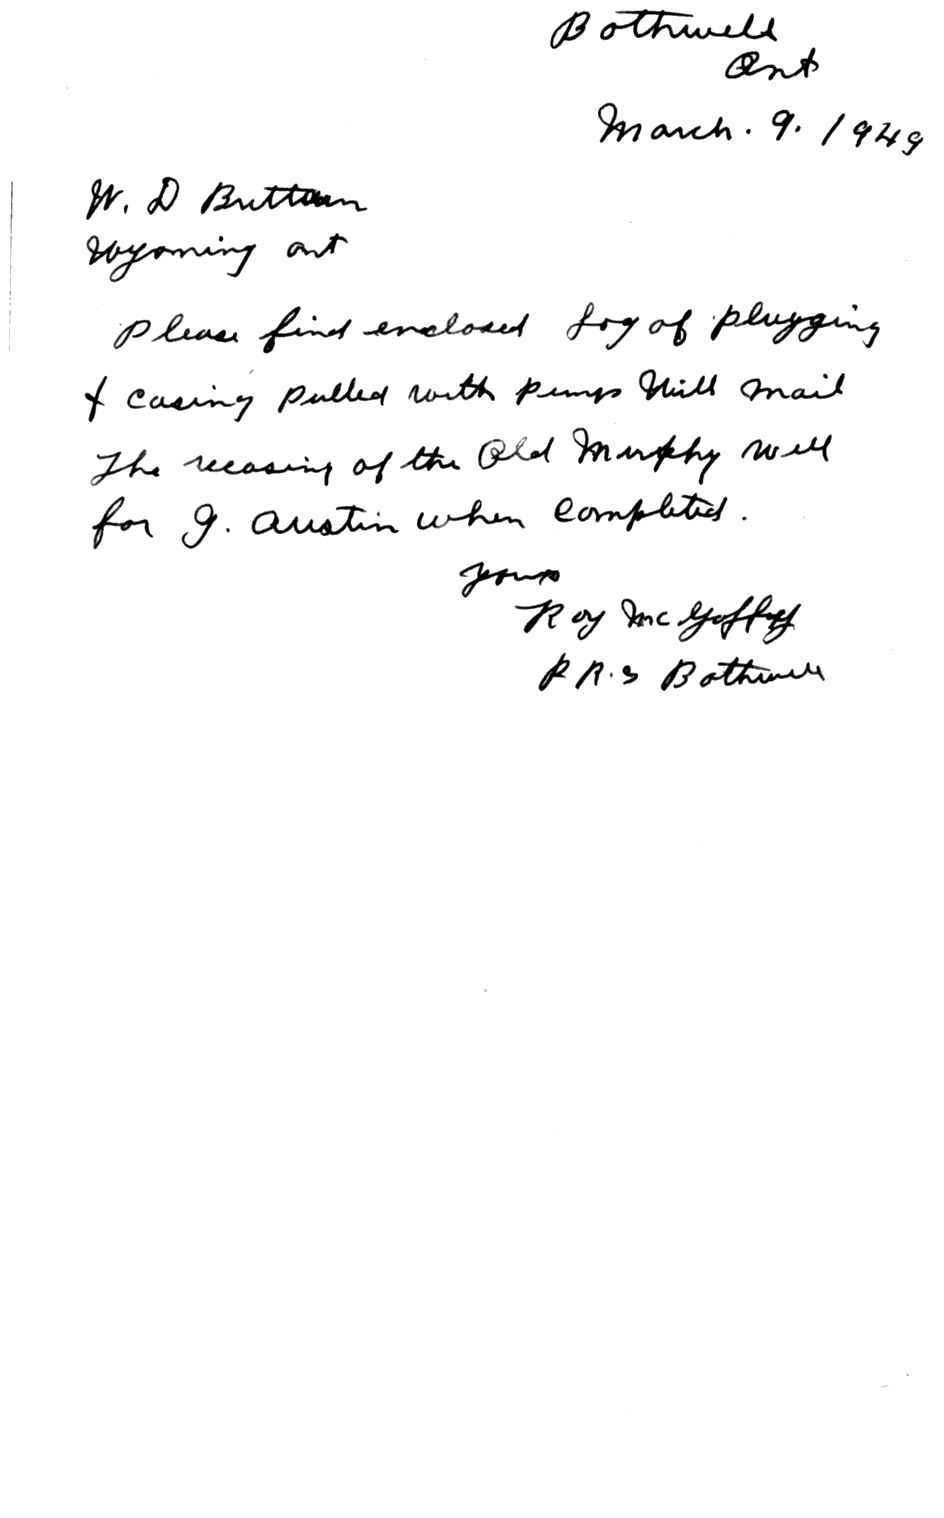 Bothwell
Ont
March. 9. 1949
W. D Brittain
Wyoming ont
Please find enclosed Log of plugging
& casing pulled with pump Will mail
The recasing of the Old Murphy well
for J. Austin when Completed.
yours
Roy Mc
R R.3 Bothwell